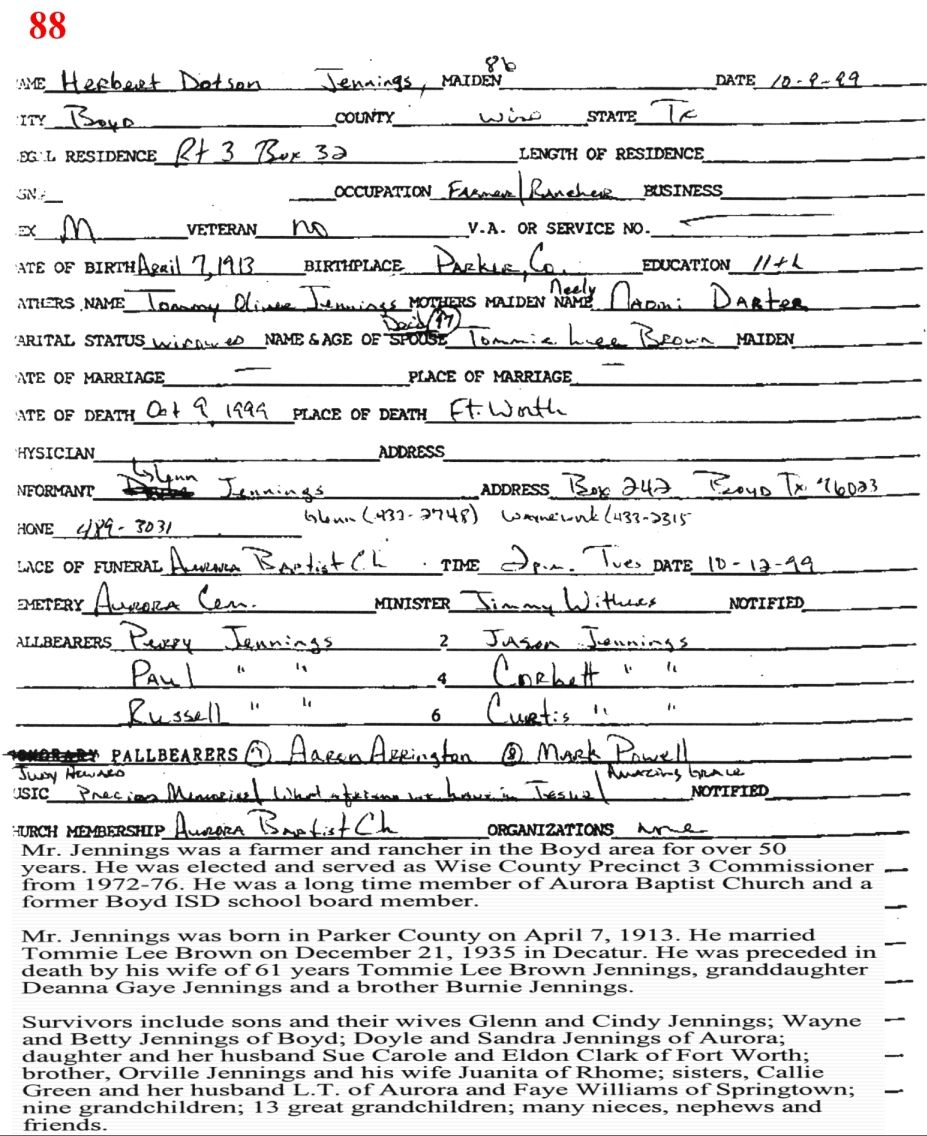 88
86
AME Herbert Dotson Jennings, MAIDEN DATE 10-9-99
ITY Boyd COUNTY Wise STATE Tx
EGAL RESIDENCE Rt 3 Box 32 LENGTH OF RESIDENCE
OCCUPATION Farmer/Rancher BUSINESS
EX M VETERAN no V.A. OR SERVICE NO.
ATE OF BIRTH April 7, 1913 BIRTHPLACE Parker, Co. EDUCATION 11th
Neely
ATHERS NAME Tommy Oliver Jennings MOTHERS MAIDEN NAME Naomi Darter
Decd 97
ARITAL STATUS widowed NAME & AGE OF SPOUSE Tommie Lee Brown MAIDEN
ATE OF MARRIAGE — PLACE OF MARRIAGE —
ATE OF DEATH Oct 9, 1999 PLACE OF DEATH Ft. Worth
HYSICIAN ADDRESS
Glynn
NFORMANT Jennings ADDRESS Box 242 Boyd Tx. 76023
HONE 489-3031 Glenn (433-2748) Wayne work (433-2315
LACE OF FUNERAL Aurora Baptist Ch. TIME 2 p.m. Tues DATE 10-12-99
EMETERY Aurora Cem. MINISTER Jimmy Withers NOTIFIED
ALLBEARERS Perry Jennings 2 Jason Jennings
Paul " " 4 Corbett " "
Russell " " 6 Curtis " "
HONORARY PALLBEARERS 7 Aaron Arrington 8 Mark Powell
Judy Howard Amazing Grace
USIC Precious Memories / What a friend we have in Jesus / NOTIFIED
HURCH MEMBERSHIP Aurora Baptist Ch ORGANIZATIONS none
Mr. Jennings was a farmer and rancher in the Boyd area for over 50
years. He was elected and served as Wise County Precinct 3 Commissioner
from 1972-76. He was a long time member of Aurora Baptist Church and a
former Boyd ISD school board member.
Mr. Jennings was born in Parker County on April 7, 1913. He married
Tommie Lee Brown on December 21, 1935 in Decatur. He was preceded in
death by his wife of 61 years Tommie Lee Brown Jennings, granddaughter
Deanna Gaye Jennings and a brother Burnie Jennings.
Survivors include sons and their wives Glenn and Cindy Jennings; Wayne
and Betty Jennings of Boyd; Doyle and Sandra Jennings of Aurora;
daughter and her husband Sue Carole and Eldon Clark of Fort Worth;
brother, Orville Jennings and his wife Juanita of Rhome; sisters, Callie
Green and her husband L.T. of Aurora and Faye Williams of Springtown;
nine grandchildren; 13 great grandchildren; many nieces, nephews and
friends.